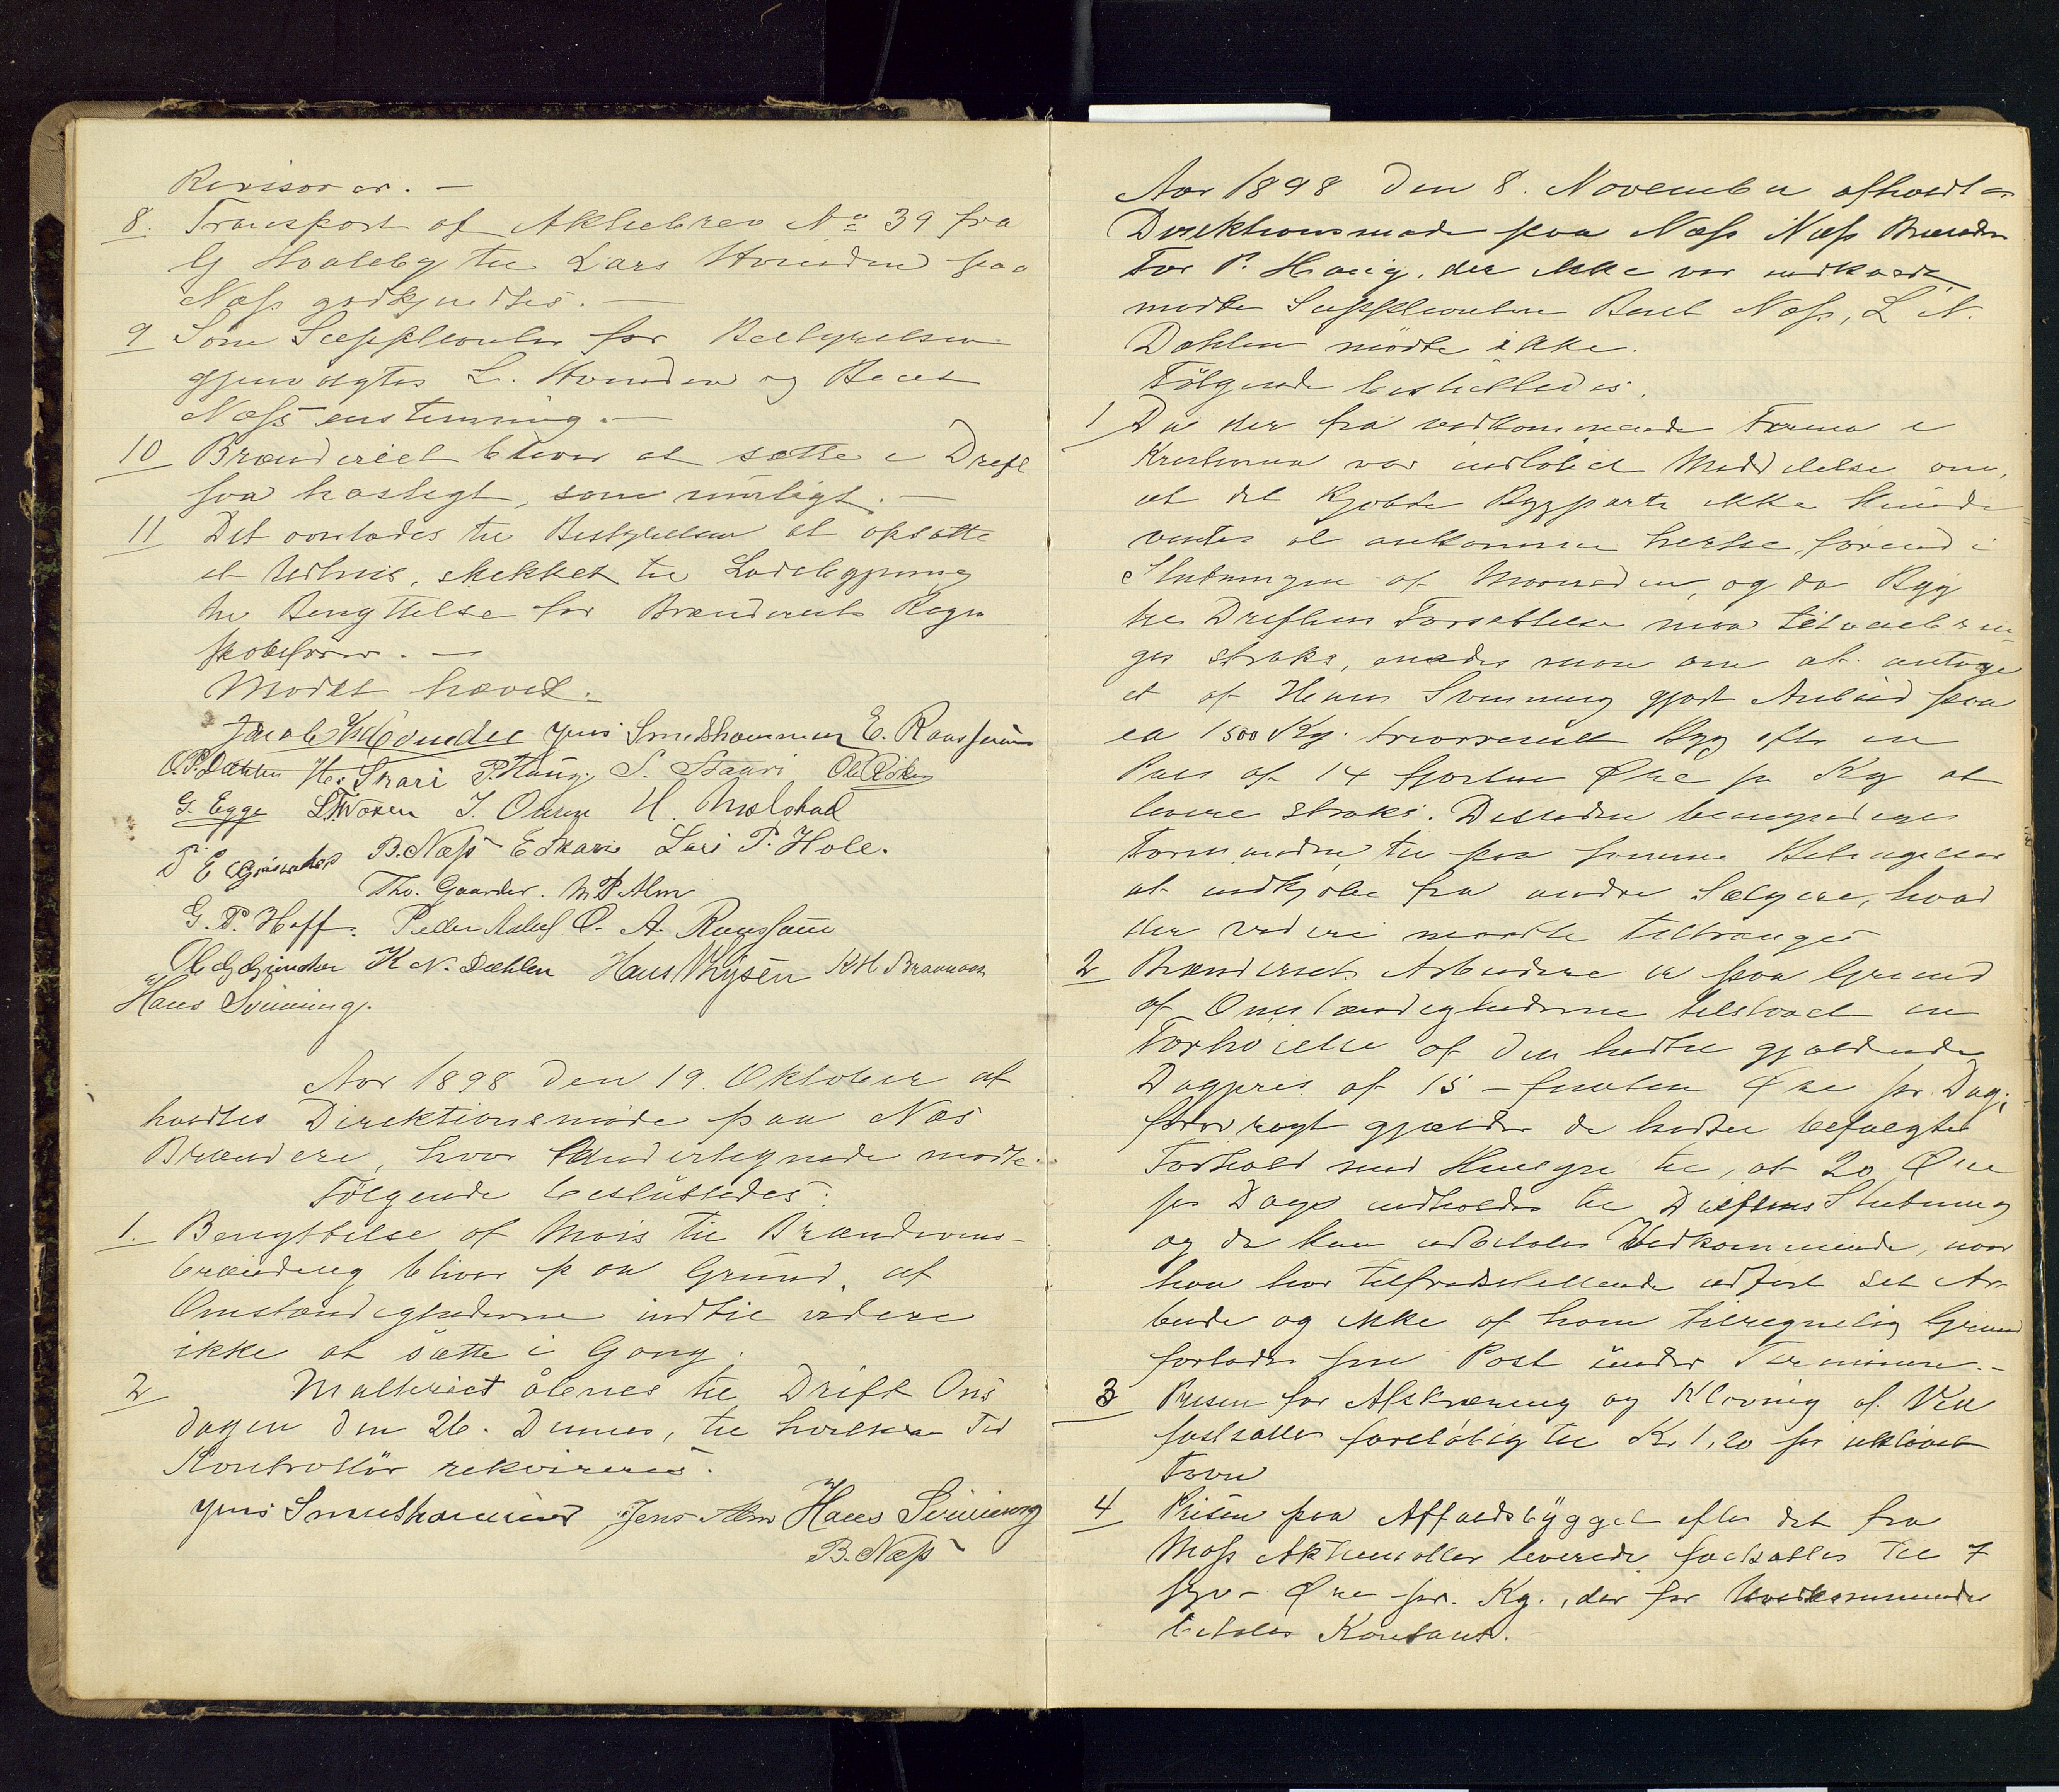 Revisorer. —
8. Transport af Aktiebrev No 39 fra
G Hvaleby til Lars Hvinden paa
Næss godkjendtes. —
9 Som Suppleanter for Bestyrelsen
gjenvalgtes L. Hvinden og Beret
Næss enstemmig. —
10 Brænderiet bliver at sætte i Drift
saa hastigt, som muligt. —
11 Det overlades til Bestyrelsen at opsætte
et Udhus, skikket til
til Benyttelse for Brænderiets Regn
skabsfører. —
Mødet hævet.
Jens Smedshammer E.
O. P. Dæhlen Hs. Skari P. Haug. S. Skari
G. Egge J. Olsen H. Molstad
B. Næss E Skari Lars P. Hole.
Tho. Gaarder. M P Alm
G. P. Hoff. Peder O. A.
K N. Dæhlen Hans Thrysen K H
Hans Svinning.
Aar 1898 den 19. Oktober af
holdtes Direktionsmøde paa Næs
Brænderi, hvor Undertegnede mødte.
Følgende besluttedes:
1. Benyttelse af Mais til Brændevins-
brænding bliver paa Grund af
Omstændighederne indtil videre
ikke at sætte i Gang.
2 Malteriet åbnes til Drift Ons
dagen den 26. Dennes, til hvilken Tid
Kontrollør rekvireres.
Jens Smedshammer Jens Alm Hans Svinning
B. Næss
Aar 1898 den 8. November afholdtes
Direktionsmøde paa Næss Næss Brænderi
For P. Haug, der ikke var indkaldt,
mødte Suppleanten Beret Næss, L N.
Dæhlen mødte ikke.
Følgende besluttedes.
1 Da der fra vedkommende Firma i
Kristiania var indløbet Meddelelse om,
at det kjøbte Bygparti ikke kunde
ventes at ankomme hertil, førend i
Slutningen af Maaneden, og da Byg
til Driftens Fortsættelse maa tilveiebrin
ges straks, enedes man om at antage
et af Hans Svinning gjort Anbud paa
ca 1500 Kg. Byg efter en
Pris af 14 fjorten Øre pr Kg at
levere straks. Desuden bemyndiges
Formanden til paa samme Betingelser
at indkjøbe fra andre Sælgere, hvad
der videre maatte tiltrænges
2 Brænderiets Arbeidere er paa Grund
af Omstændighederne tilstaaet en
Forhøielse af den hidtil gjældende
Dagpris af 15 – femten Øre pr. Dag;
forøvrigt gjælder de hidtil befulgte
Forhold med Hensyn til, at 20 Øre
pr Dag indholdes til Driftens Slutning
og da kun udbetales Vedkommende, naar
han har tilfredsstillende udført sit Ar
beide og ikke af ham tilregnelig Grund
forlader sin Post under Terminen. –
3 Prisen for Afskæring og Kløvning af Ved
fastsættes foreløbig til Kr. 1,20 pr ukløvet
Favn
4 Prisen paa Affaldsbygget efter det fra
Moss Aktiemøller leverede fastsættes til 7
syv – Øre pr. Kg., der for Vedkommende
betales Kontant.